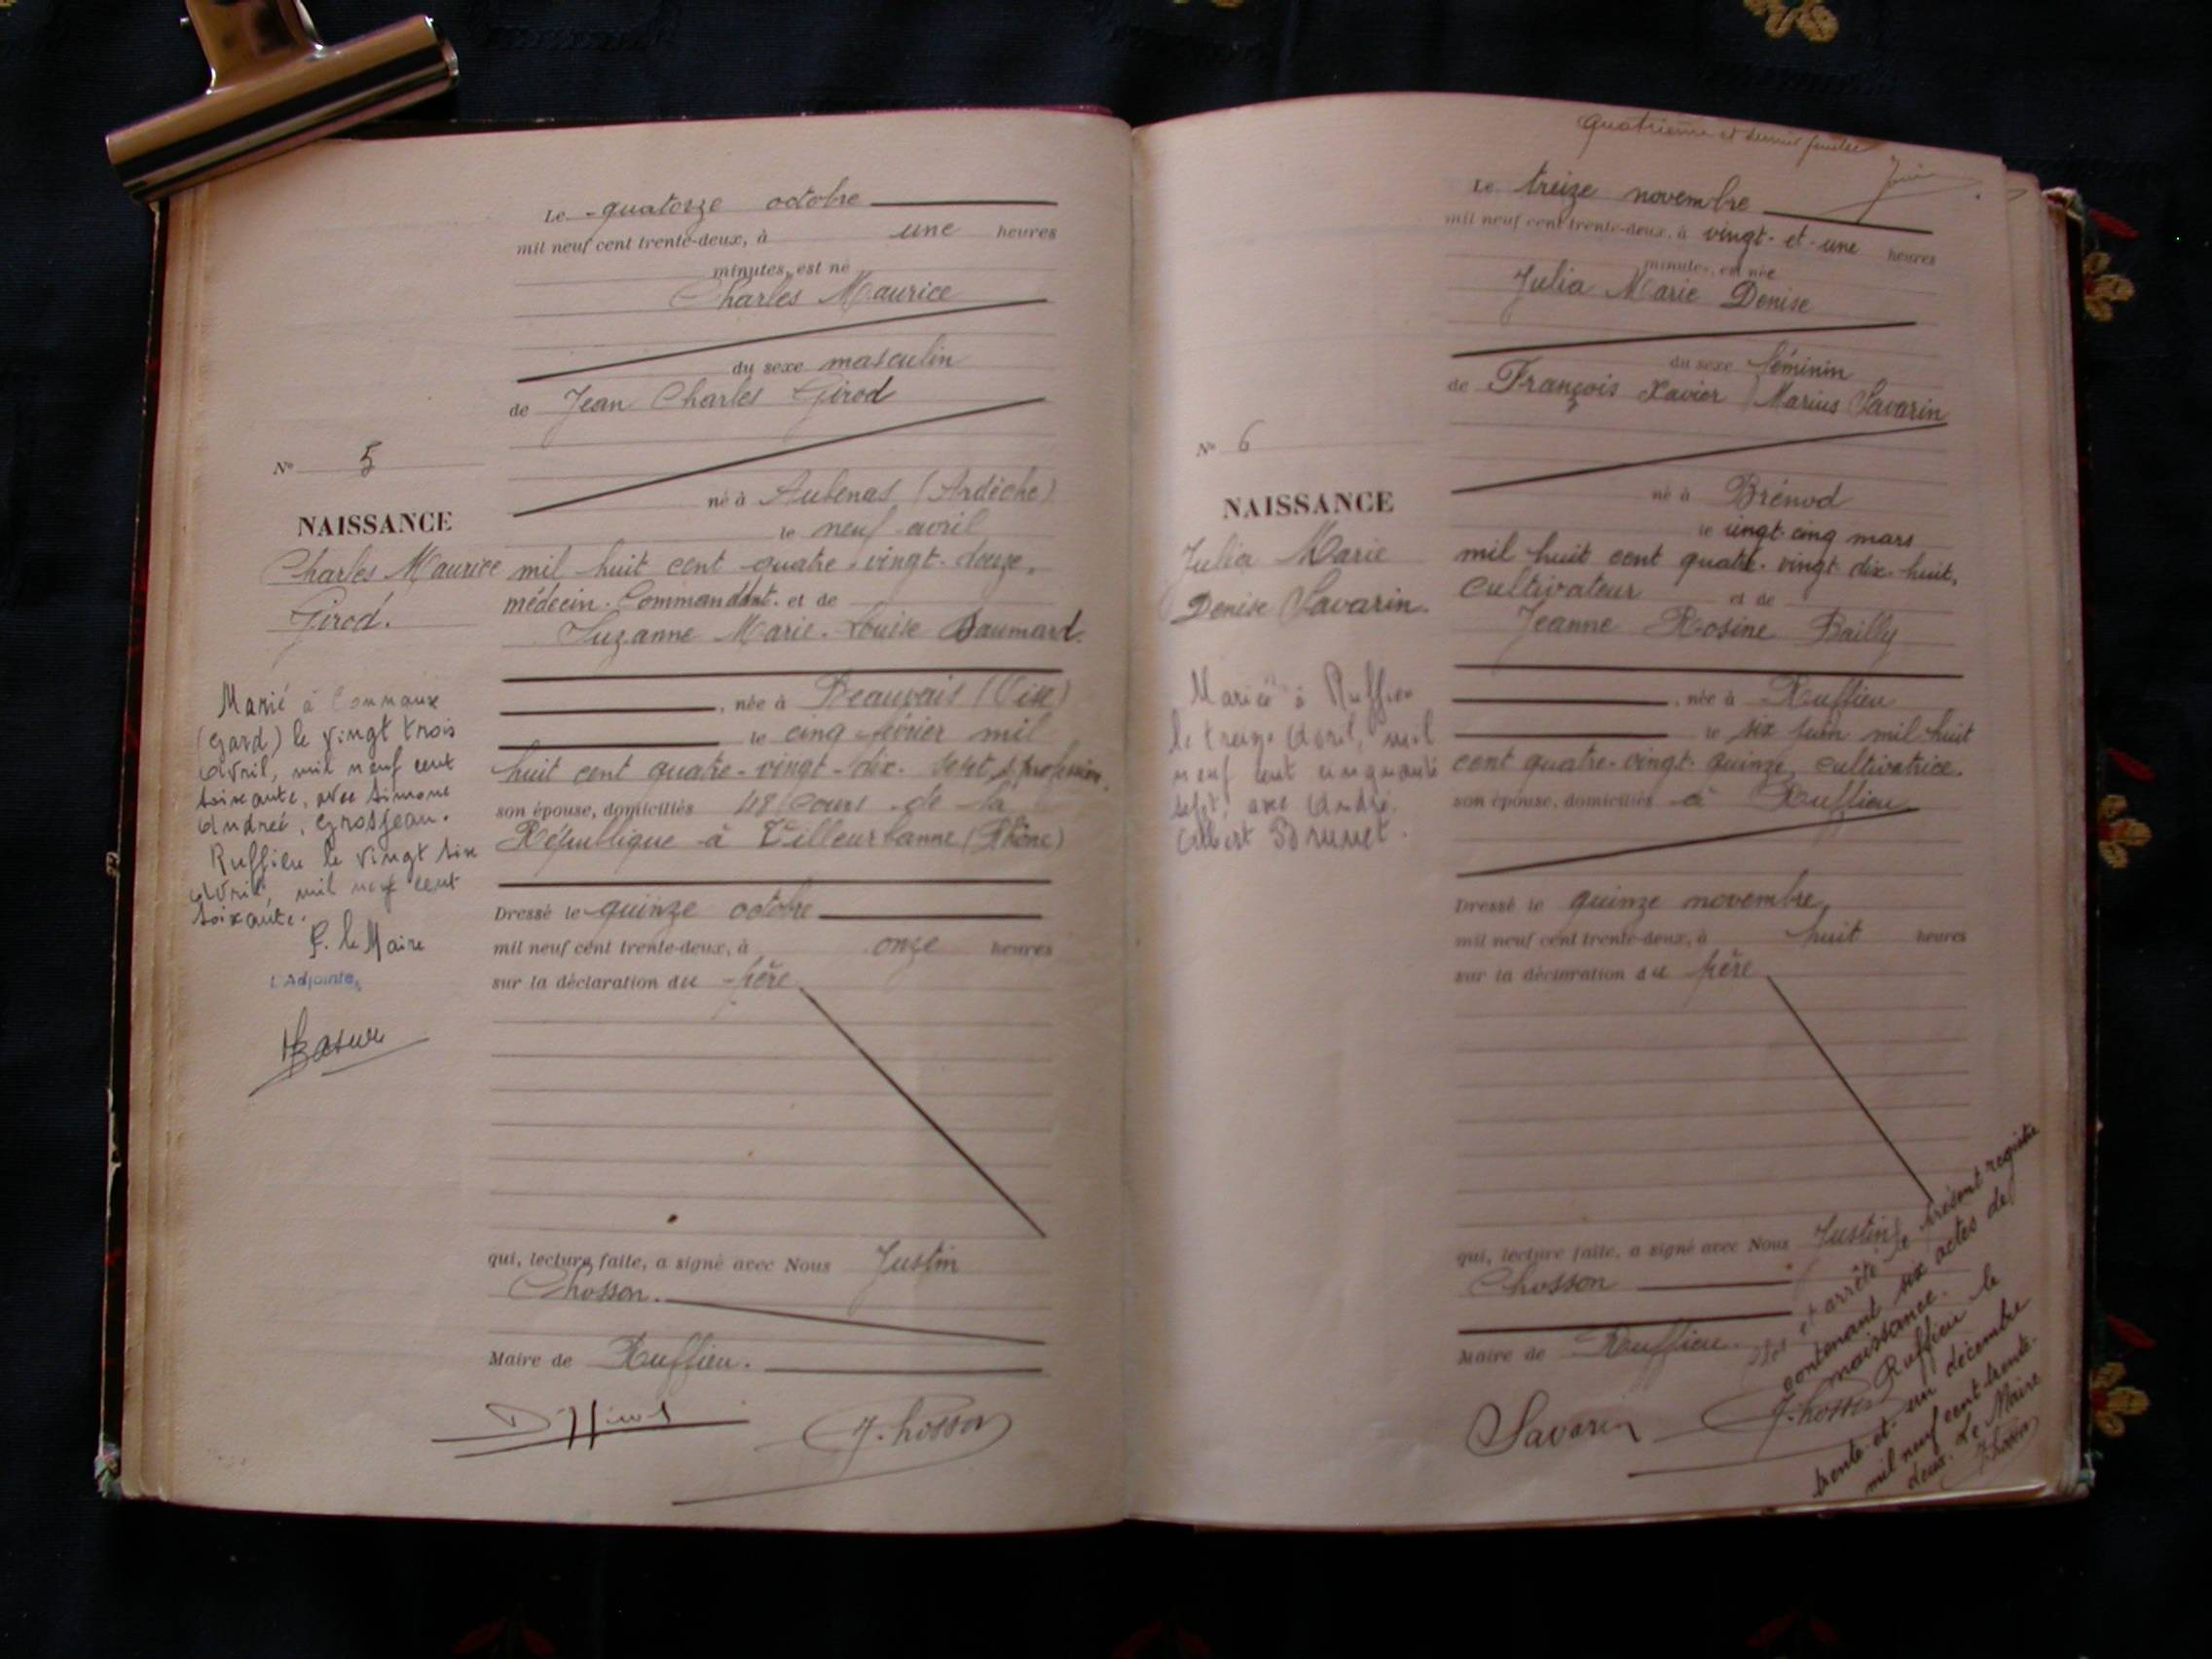 Le quatorze octobre
mil neuf cent trente-deux, à une heures
minutes, est né
Charles Maurice
du sexe masculin
de Jean Charles Girod
N° 5
né à Aubenas (Ardèche)
NAISSANCE
le neuf avril
Charles Maurice
Girod.
mil huit cent quatre-vingt-douze,
médecin-Commandant et de
Suzanne Marie-Louise Baumard
Marié à Connaux
(Gard) le vingt trois
Avril, mil neuf cent
soixante, avec Simone
Andreé, Grosjean.
Ruffieu le vingt six
Avril, mil neuf cent
soixante.
P. le Maire
L'Adjointe,
, née à Beauvais (Oise)
le cinq février mil
huit cent quatre-vingt-dix-sept, s. profession,
son épouse, domiciliés 48 Cours de la
République à Villeurbanne (Rhône)
Dressé le quinze octobre
mil neuf cent trente-deux, à onze heures
sur la déclaration du père
qui, lecture faite, a signé avec Nous Justin
Chosson.
Maire de Ruffieu.
J. Chosson
Quatrième et dernier feuillet
Le treize novembre
mil neuf cent trente-deux, à vingt-et-une heures
minutes, est née
Julia Marie Denise
du sexe féminin
de François Xavier Marius Savarin
N° 6
né à Brénod
NAISSANCE
le vingt-cinq mars
Julia Marie
Denise Savarin.
mil huit cent quatre-vingt-dix-huit,
cultivateur et de
Jeanne Rosine Bailly
Mariée à Ruffieu
le treize Avril, mil
neuf cent cinquante
sept, avec André
Albert Brunet.
, née à Ruffieu
le six juin mil huit
cent quatre-vingt-quinze, cultivatrice.
son épouse, domiciliés à Ruffieu
Dressé le quinze novembre,
mil neuf cent trente-deux, à huit heures
sur la déclaration du père
qui, lecture faite, a signé avec Nous Justin
Chosson
Maire de Ruffieu.
Savarin
J. Chosson
et arrêté le présent registre
contenant six actes de
naissance.
Ruffieu le
trente-et-un décembre
mil neuf cent trente-
deux. Le Maire
J. Chosson